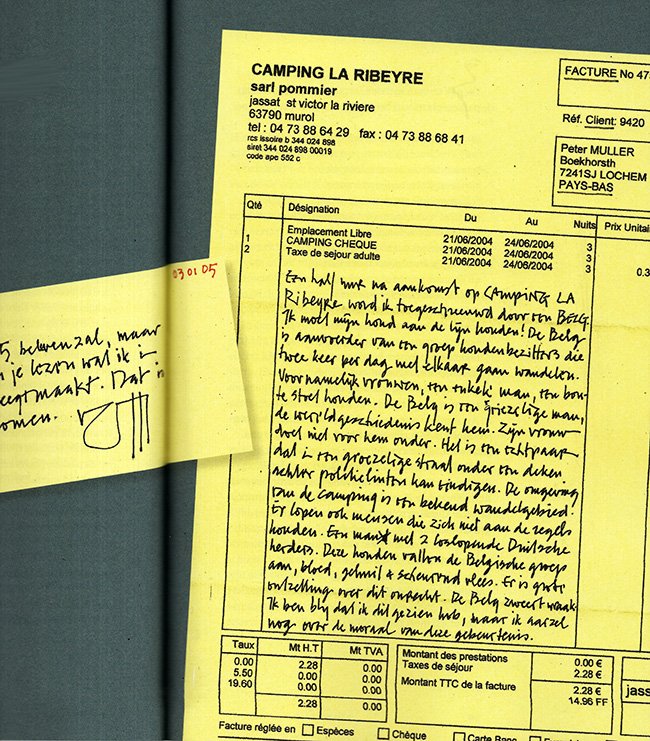 CAMPING LA RIBEYRE
sarl pommier
jassat st victor la riviere
63790 murol
tel : 04 73 88 64 29 fax : 04 73 88 68 41
rcs issoire b 344 024 898
siret 344 024 898 00019
code ape 552 c
FACTURE No 473
Réf. Client: 9420
Peter MULLER
Boekhorsth
7241SJ LOCHEM
PAYS-BAS
Qté Désignation Du Au Nuits Prix Unitai
Emplacement Libre 21/06/2004 24/06/2004 3
1 CAMPING CHEQUE 21/06/2004 24/06/2004 3
2 Taxe de sejour adulte 21/06/2004 24/06/2004 3 0.3
03 01 05
5 beleven zal, maar
je lezen wat ik in
maakt. Dat
omen.
Een half uur na aankomst op CAMPING LA
Ribeyre word ik toegeschreeuwd door een BELG.
Ik moet mijn hond aan de lijn houden! De Belg
is aanvoerder van een groep hondenbezitters die
twee keer per dag met elkaar gaan wandelen.
Voornamelijk vrouwen, een enkele man, een bon-
te stoet honden. De Belg is een griezelige man,
de wereldgeschiedenis kent hem. Zijn vrouw
doet niet voor hem onder. Het is een echtpaar
dat in een groezelige straat onder een deken
achter politielinten kan eindigen. De omgeving
van de camping is een bekend wandelgebied.
Er lopen ook mensen die zich niet aan de regels
houden. Een man met 2 loslopende Duitsche
herders. Deze honden vallen de Belgische groep
aan, bloed, gehuil & scheurend vlees. Er is grote
ontzetting over dit onrecht. De Belg zweert wraak.
Ik ben blij dat ik dit gezien heb, maar ik aarzel
nog over de moraal van deze gebeurtenis.
Taux Mt H.T Mt TVA
0.00 2.28 0.00
5.50 0.00 0.00
19.60 0.00 0.00
2.28 0.00
Montant des prestations 0.00 €
Taxes de séjour 2.28 €
Montant TTC de la facture 2.28 €
14.96 FF
jass
Facture réglée en Espèces Chèque Carte Banc